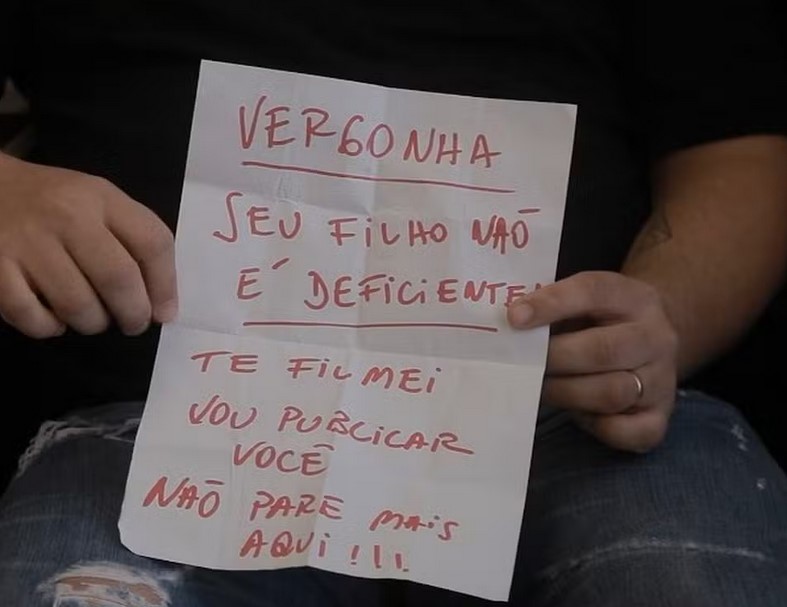 VERGONHA
SEU FILHO NÃO
É DEFICIENTE!
TE FILMEI
VOU PUBLICAR
VOCÊ
NÃO PARE MAIS
AQUI !!!